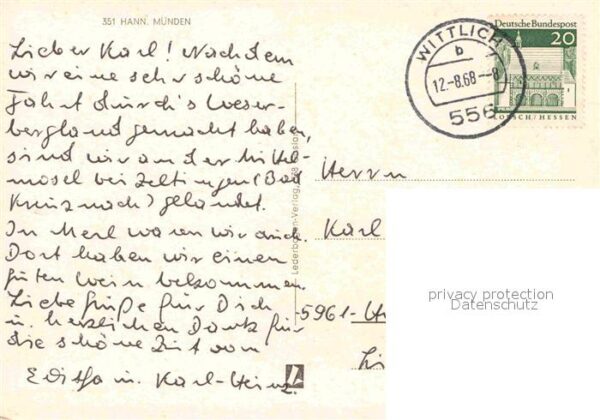 351 HANN. MÜNDEN
Lieber Karl! Nachdem
wir eine sehr schöne
Fahrt durch's Weser-
bergland gemacht haben,
sind wir an der Mittel-
mosel bei Zeltingen (Bad
Kreuznach) gelandet.
In Merl waren wir auch.
Dort haben wir einen
guten Wein bekommen.
Liebe Grüße für Dich
u. herzlichen Dank für
die schöne Zeit von
Editha u. Karl-Heinz.
Lederbogen-Verlag,
WITTLICH
b
12.-8.68.--8
556
Deutsche Bundespost
20
LORSCH/HESSEN
Herrn
Karl
5961-
privacy protection
Datenschutz